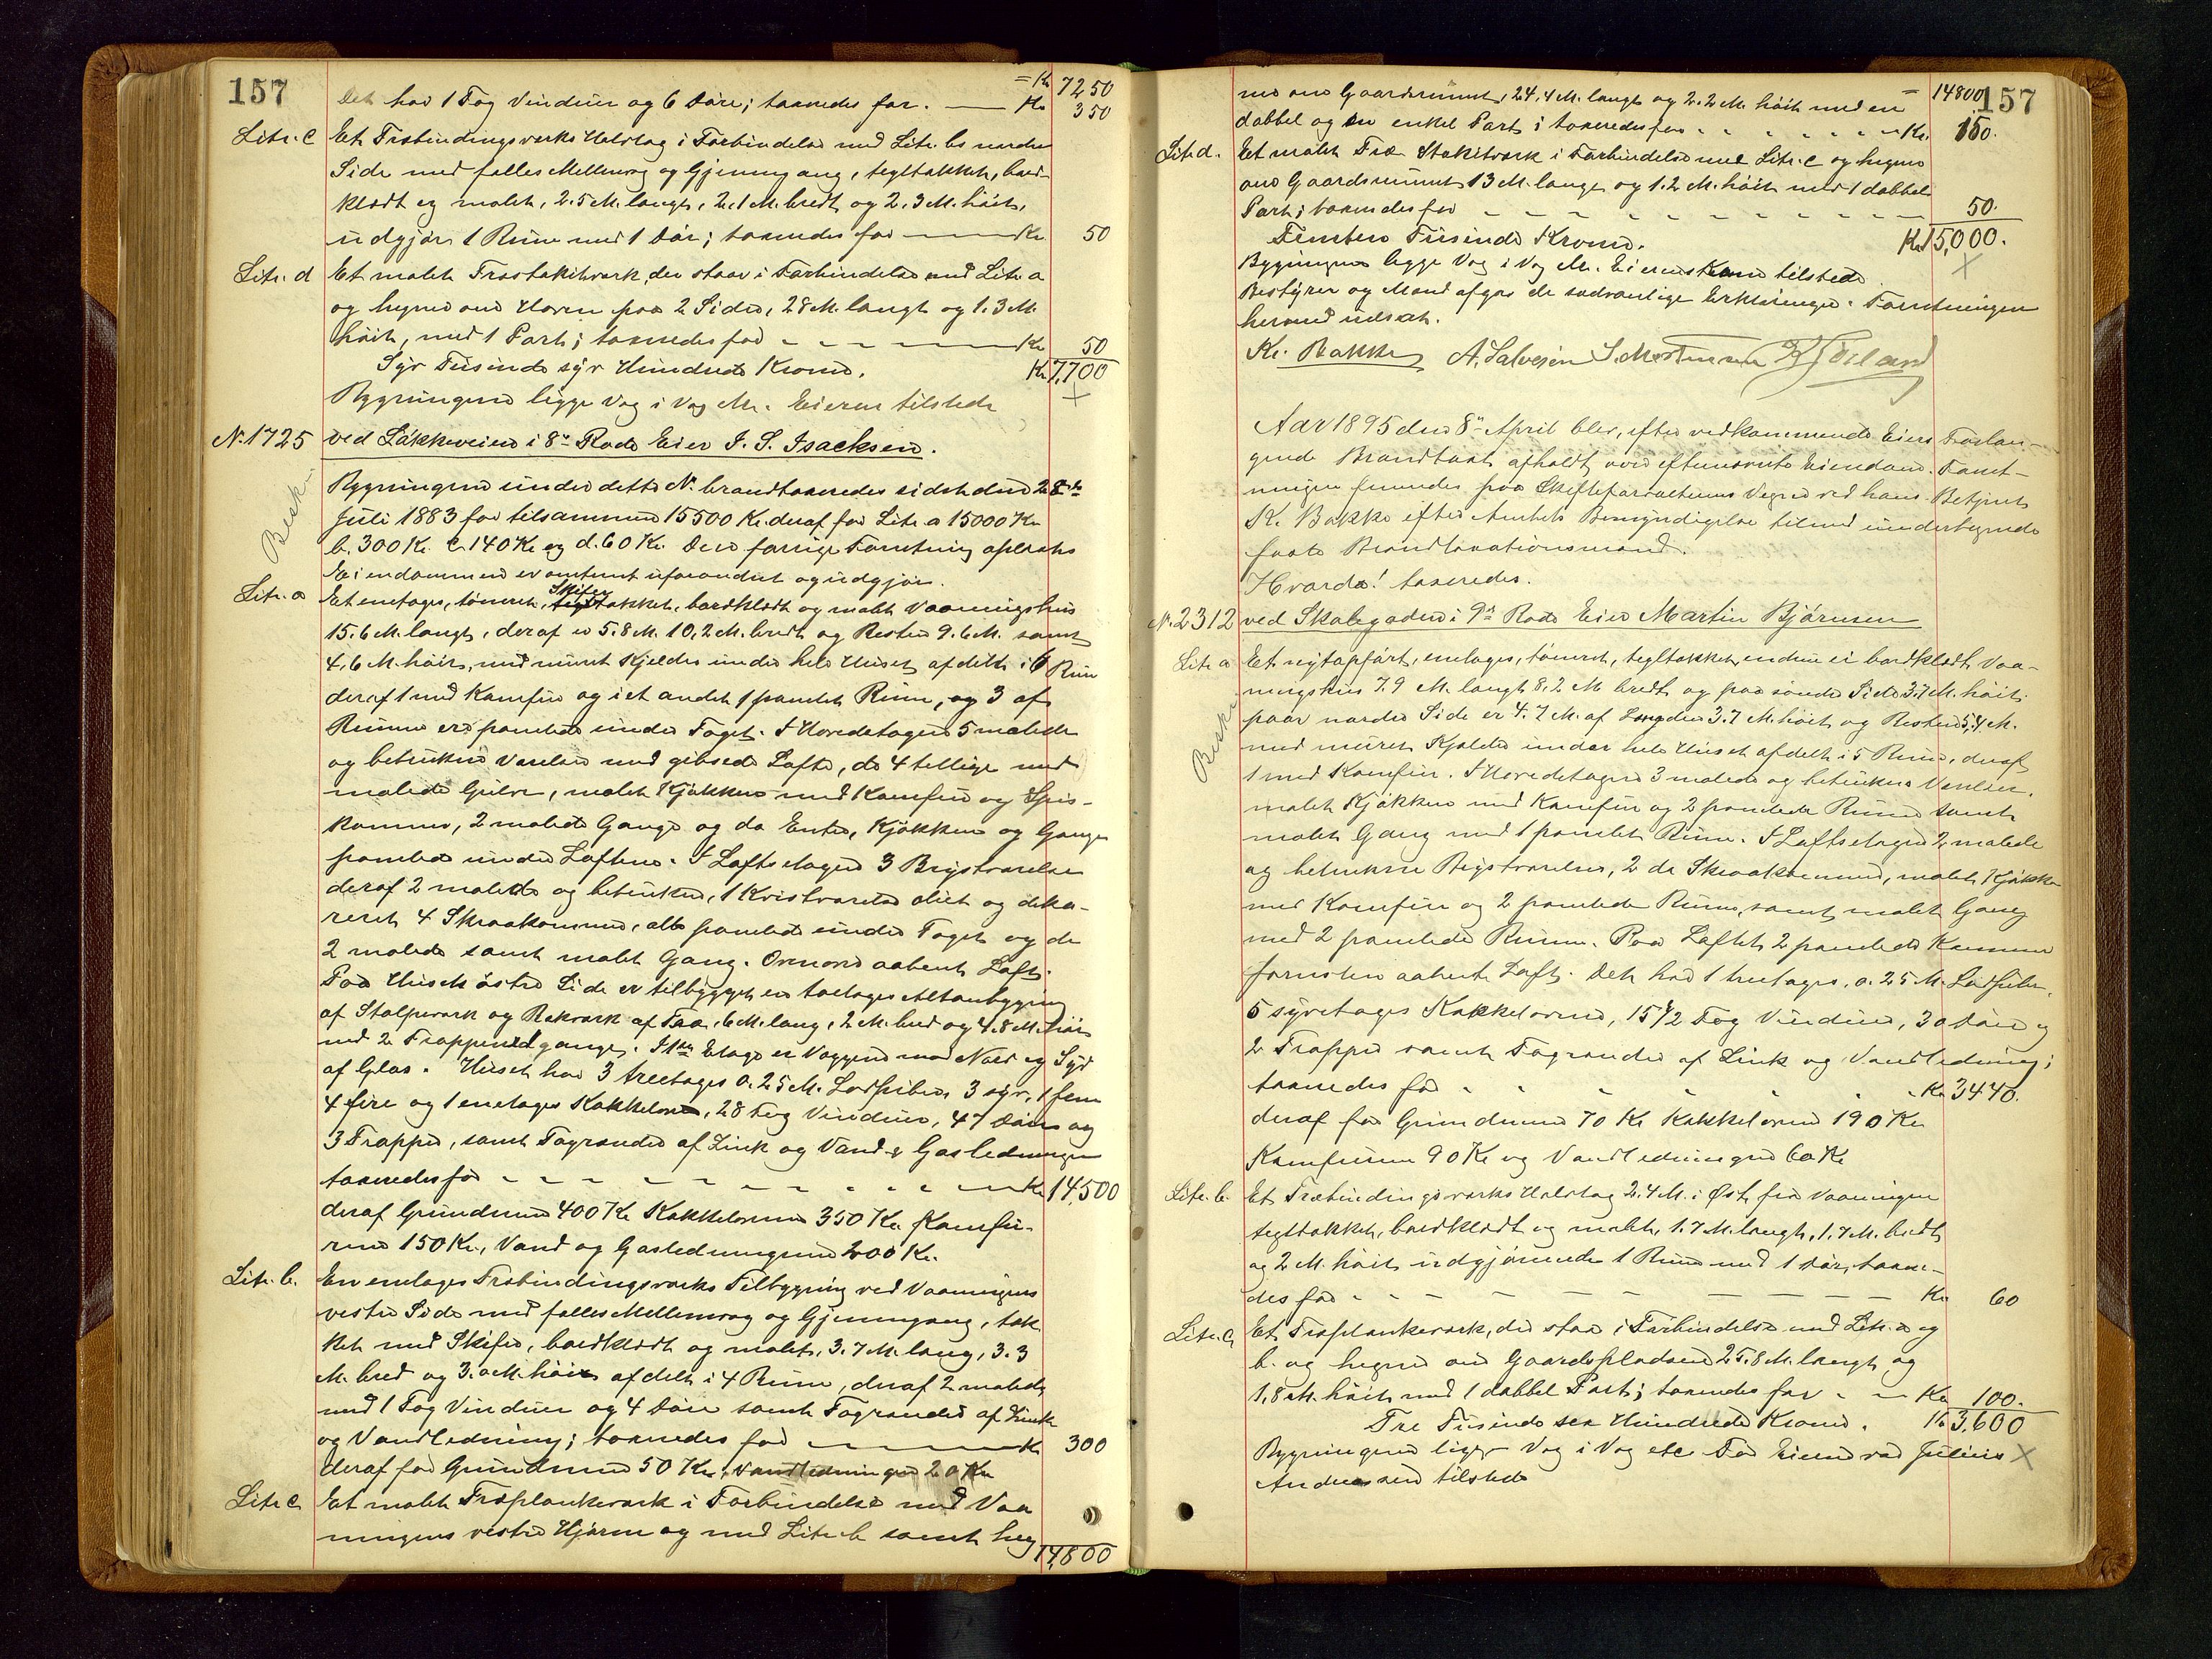 157
= Kr 7250
Det har 1 Fag Vinduer og 6 Døre; taxeredes for. — Kr 350
Litr. c Et Træbindingsverks Halvtag i Forbindelse med Litr. bs nordre
Side med fælles Mellemvæg og Gjennemgang, tegltækket, bord-
klædt og malet, 2.5 M. langt, 2.1 M. bredt og 2.3 M. høit,
udgjør 1 Rum med 1 Dør; taxeredes for — Kr 50
Litr. d Et malet Træstakitværk, der staar i Forbindelse med Litr. a
og hegner om Haven paa 2 Sider, 28 M. langt og 1.3 M.
høit, med 1 Port; taxeredes for — Kr 50
Syv Tusinde syv Hundrede Kroner. Kr 7,700
Bygningerne ligge Væg i Væg etc. Eieren tilstede
N. 1725 ved Løkkeveien i 8de Rode Eier I. S. Isachsen.
Besk.
Bygningerne under dette N. brandtaxeredes sidst den 28de
Juli 1883 for tilsammen 15500 Kr. deraf for Litr. a 15000 Kr
b. 300 Kr. c. 140 Kr og d. 60 Kr. Den forrige Forretning oplæstes
Eiendommen er omtrent uforandret og udgjør.
Litr. a Et enetages, tømret, Skifer tækket, bordklædt og malet Vaaningshus
15.6 M. langt, deraf er 5.8 M. 10,2 M. bredt og Resten 9.6 M. samt
4.6 M. høit, med muret Kjelder under hele Huset afdelt i 6 Rum
deraf 1 med Komfur og i et andet 1 panelet Rum, og 3 af
Rummene er panelede under Taget. I Hovedetagen 5 malede
og betrukne Værelser med gibsede Lofte, de 4 tillige med
malede Gulve, malet Kjøkken med Komfur og Spis-
kammer, 2 malede Gange og da Entre, Kjøkken og Gange
panelede under Loftene. I Loftsetagen 3 Brystværelser
deraf 2 malede og betrukne, 1 Kvistværelse oliet og deko-
reret 4 Skraakammer, alle panelede under Taget og de
2 malede samt malet Gang. Ovenover aabent Loft.
Paa Husets østre Side er tilbygget en toetages Altanbygning
af Stolpeværk og Rækværk af Træ, 6 M. lang, 2 M. bred og 4.8 M. høi
med 2 Trappenedgange. I 1ste Etage er Væggene mod Nord og Syd
af Glas. Huset har 3 treetages 0.25 M. Lodpiber, 3 syv, 1 fem
4 fire og 1 enetages Kakkelovne, 28 Fag Vinduer, 47 Døre og
3 Trapper, samt Tagrender af Zink og Vand & Gasledninger
taxeredes for — Kr 14,500
deraf Grundmure 400 Kr Kakkelovne 350 Kr. Komfu-
rene 150 Kr., Vand og Gasledningerne 200 Kr.
Litr. b. En enetages Træbindingsværks Tilbygning ved Vaaningens
vestre Side med fælles Mellemvæg og Gjennemgang, tæk-
ket med Skifer, bordklædt og malet, 3.7 M. lang, 3.3
M. bred og 3.0 M. høi afdelt i 4 Rum, deraf 2 malede
med 1 Fag Vinduer og 4 Døre samt Tagrender af Zink
og Vandledning; taxeredes for — Kr 300
deraf for Grundmure 50 Kr., Vandledningen 20 Kr
Litr. c Et malet Træplankeværk i Forbindelse med Vaa-
ningens vestre Hjørne og med Litr. b samt heg-
14,800
= 14800 157
ner om Gaardsrummet, 24.4 M. langt og 2.2 M. høit med en
dobbel og en enkel Port; taxeredes for - - - Kr. 150.
Litr. d. Et malet Træ Stakitværk i Forbindelse med Litr. c og hegner
om Gaardsrummet 13 M. langt og 1.2 M. høit med 1 dobbel
Port; taxeredes for - - - 50.
Femten Tusinde Kroner. Kr 15,000.
Bygningerne ligge Væg i Væg etc. Eierens Kone tilstede
Bestyrer og Mænd afgav de sædvanlige Erklæringer. Forretningen
hermed udsat.
Kr. Bakke A. Salvesen S. Mortensen
Aar 1895 den 8de April blev, efter vedkommende Eiers Forlan-
gende Brandtaxt afholdt over eftermeldte Eiendom. Forret-
ningen fremmedes paa Skifteforvalterens Vegne ved hans Betjent
K. Bakke efter Amtets Bemyndigelse tilmed undertegnede
faste Brandtaxationsmænd.
Hvorda! taxeredes.
N. 2312 ved Skolegaden i 9de Rode Eier Martin Bjørnsen
Besk.
Litr. a Et nytopført, enetages, tømret, tegltækket, endnu ei bordklædt Vaa-
ningshus 7.9 M. langt 8,2 M bredt og paa søndre Side 3.7 M. høit.
paa nordre Side er 4.7 M. af Længden 3.7 M. høit og Resten 5,4 M.
med muret Kjelder under hele Huset afdelt i 5 Rum, deraf
1 med Komfur. I Hovedetagen 3 malede og betrukne Værelser,
malet Kjøkken med Komfur og 2 panelede Rum samt
malet Gang med 1 panelet Rum. I Loftsetagen 2 malede
og betrukne Brystværelser, 2 do Skraakammer, malet Kjøkken
med Komfur og 2 panelede Rum, samt malet Gang
med 2 panelede Rum. Paa Loftet 2 panelede Kammer
forresten aabent Loft. Det har 1 treetages, 0.25 M. Lodpibe,
5 syvetages Kakkelovne, 15 1/2 Fag Vinduer, 30 Døre og
2 Trapper samt Tagrender af Zink og Vandledning;
taxeredes for - - - Kr 3440.
deraf for Grundmure 70 Kr Kakkelovne 190 Kr
Komfurene 90 Kr og Vandledningen 60 Kr
Litr. b. Et Træbindingsværks Halvtag 2.4 M. i Øst fra Vaaningen
tegltækket, bordklædt og malet, 1.7 M. langt, 1.7 M. bredt
og 2 M. høit udgjørende 1 Rum med 1 Dør, taxere-
des for - - - Kr 60
Litr. c, Et Træplankeværk, der staar i Forbindelse med Litr. a og
b. og hegner om Gaardspladsen 25.8 M. langt, og
1,8 M. høit med 1 dobbel Port; taxeredes for - - Kr 100.
Tre Tusinde sex Hundrede Kroner. Kr 3,600
Bygningerne ligger Væg i Væg etc For Eieren var Julius
Andreassen tilstede